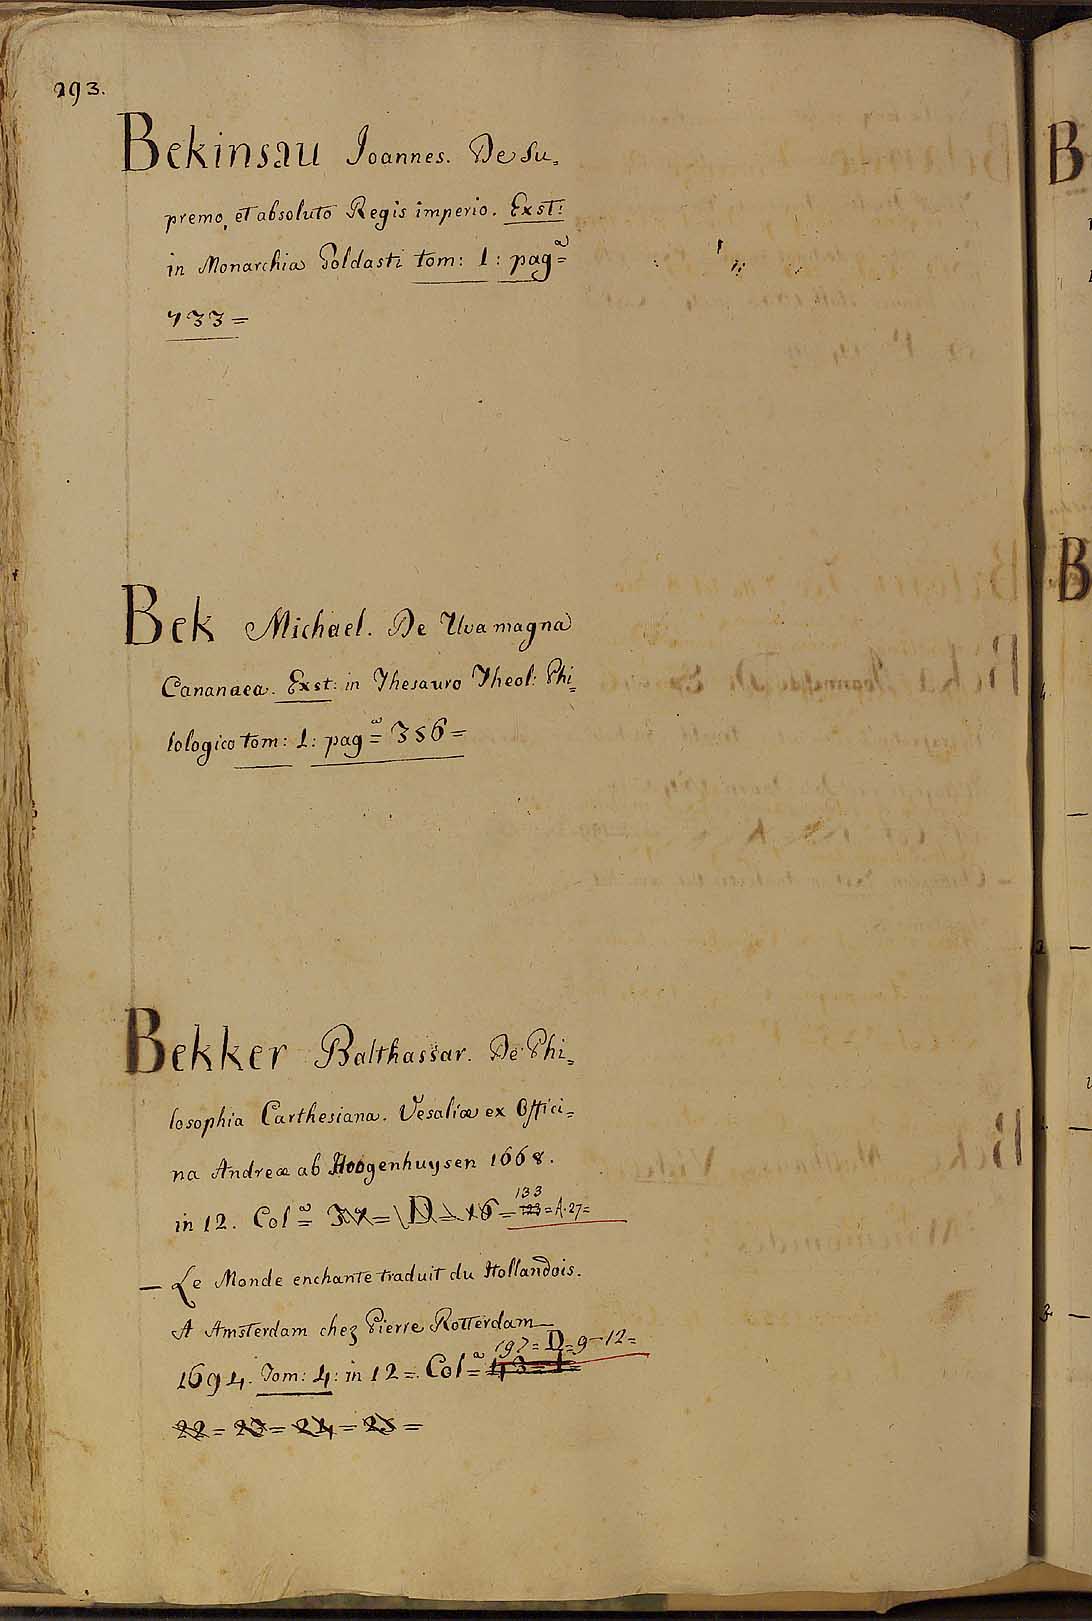 293.
Bekinsau Ioannes. De Su=
premo, et absoluto Regis imperio. Exst:
in Monarchia Goldasti tom: 1: pagᵃ=
733=
Bek Michael. De Uva magna
Cananaea. Exst: in Thesauro Theol: Phi=
lologico tom: 1: pagᵃ= 356=
Bekker Balthassar. De Phi=
losophia Carthesiana. Vesaliæ ex Offici=
na Andreæ ab Hoogenhuysen 1668.
133
in 12. Colᵃ= 37= D= 16= 123=A.27=
— Le Monde enchante traduit du Hollandois.
A Amsterdam chez Pierre Rotterdam—
197=D=9-12=
1694. Tom: 4: in 12=. Colᵃ= 43=1=
22= 23= 24= 25=
B
B